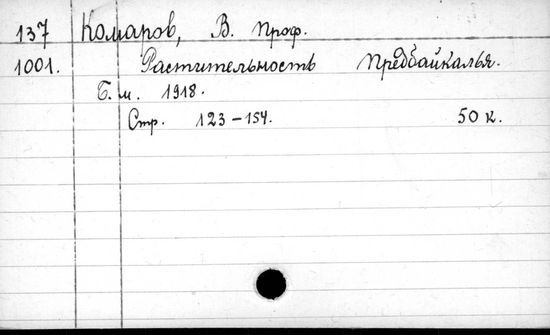 137 Комаров, В. проф.
1001. Растительность Предбайкалья.
Б.м. 1918.
Стр. 123-154. 50 к.